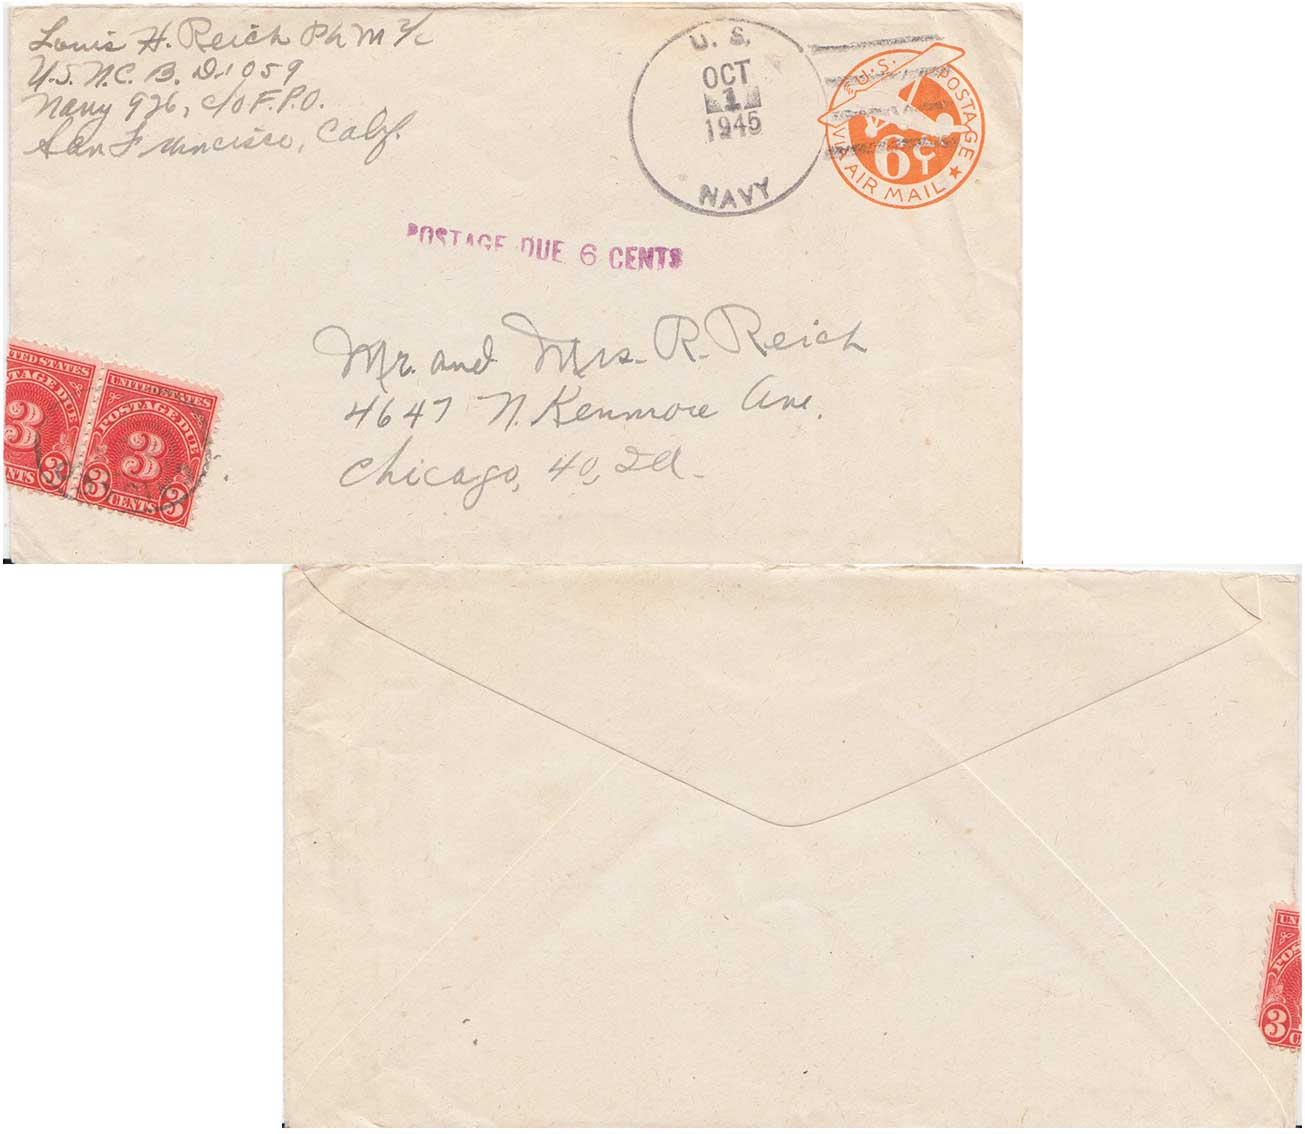 Louis H. Reich PhM 2/c
U.S.N.C.B. D-1059
Navy 926, c/o F.P.O.
San Francisco, Calif.
U. S.
OCT
1
1945
NAVY
U.S. POSTAGE
6¢
VIA AIR MAIL
POSTAGE DUE 6 CENTS
Mr. and Mrs. R. Reich
4647 N. Kenmore Ave.
Chicago, 40, Ill.
TED STATES
TAGE DUE
3
NTS 3
UNITED STATES
POSTAGE DUE
3
3 CENTS 3
UNI
POS
3 C